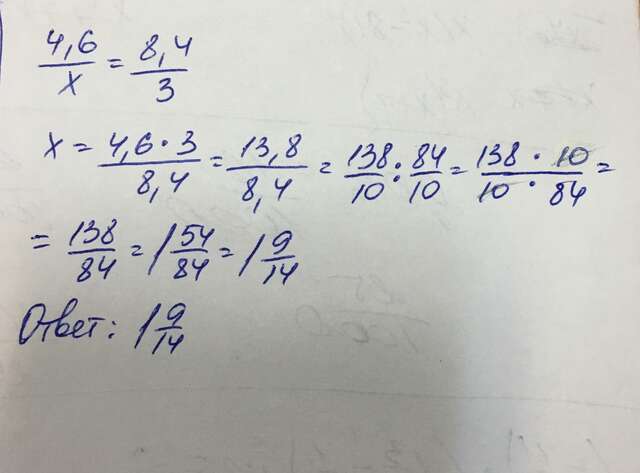 4,6/x = 8,4/3
x = 4,6·3/8,4 = 13,8/8,4 = 138/10 : 84/10 = 138·10/10·84 =
= 138/84 = 1 54/84 = 1 9/14
Ответ: 1 9/14